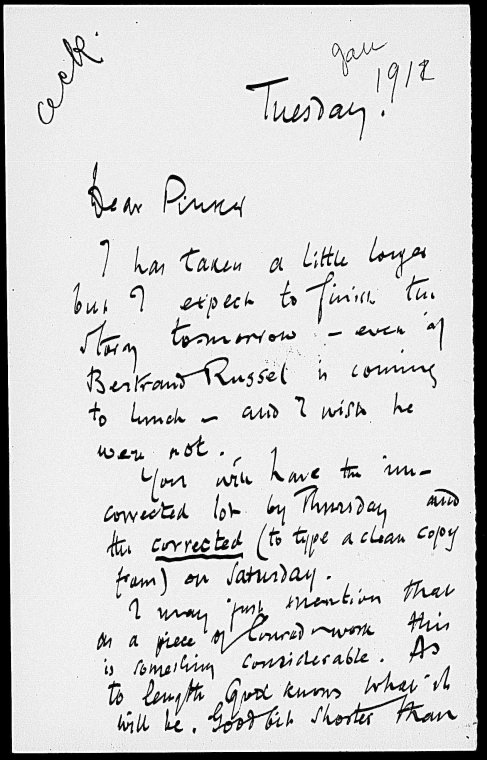 ack.
Jan
1912
Tuesday.
Dear Pinker
I has taken a little longer
but I expect to finish the
story tomorrow – even if
Bertrand Russel is coming
to lunch – and I wish he
were not.
You will have the un-
corrected lot by Thursday and
the corrected (to type a clean copy
from) on Saturday.
I may just mention that
as a piece of Conrad-work this
is something considerable. As
to length God knows what it
will be. Good bit shorter than